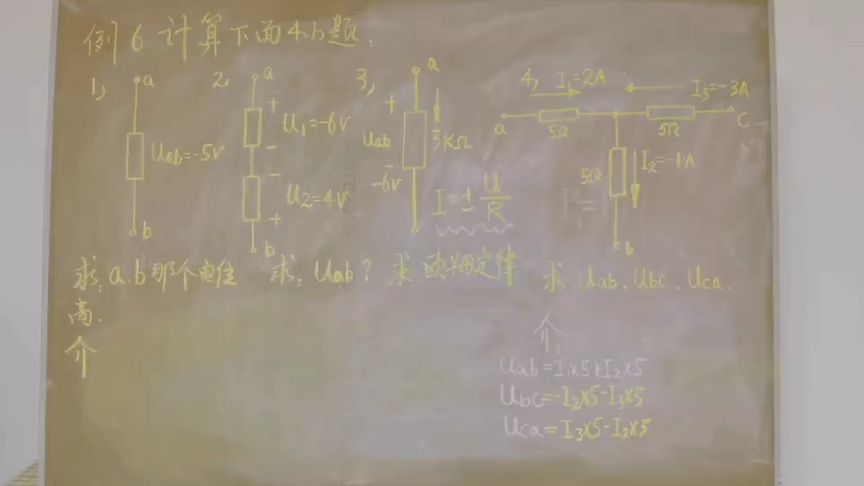 例6 计算下面4小题:
1, a Uab=-5V b
2, a + U₁=-6V - - U₂=4V + b
3, a + Uab - -6V 3KΩ I=±U/R
4, I₁=2A I₃=-3A a 5Ω 5Ω c 5Ω I₂=-1A b
求: a.b那个电位高.
求: Uab?
求:欧姆定律
求:Uab、Ubc、Uca.
介
介:
Uab=I₁×5+I₂×5
Ubc=-I₂×5-I₃×5
Uca=I₃×5-I₂×5